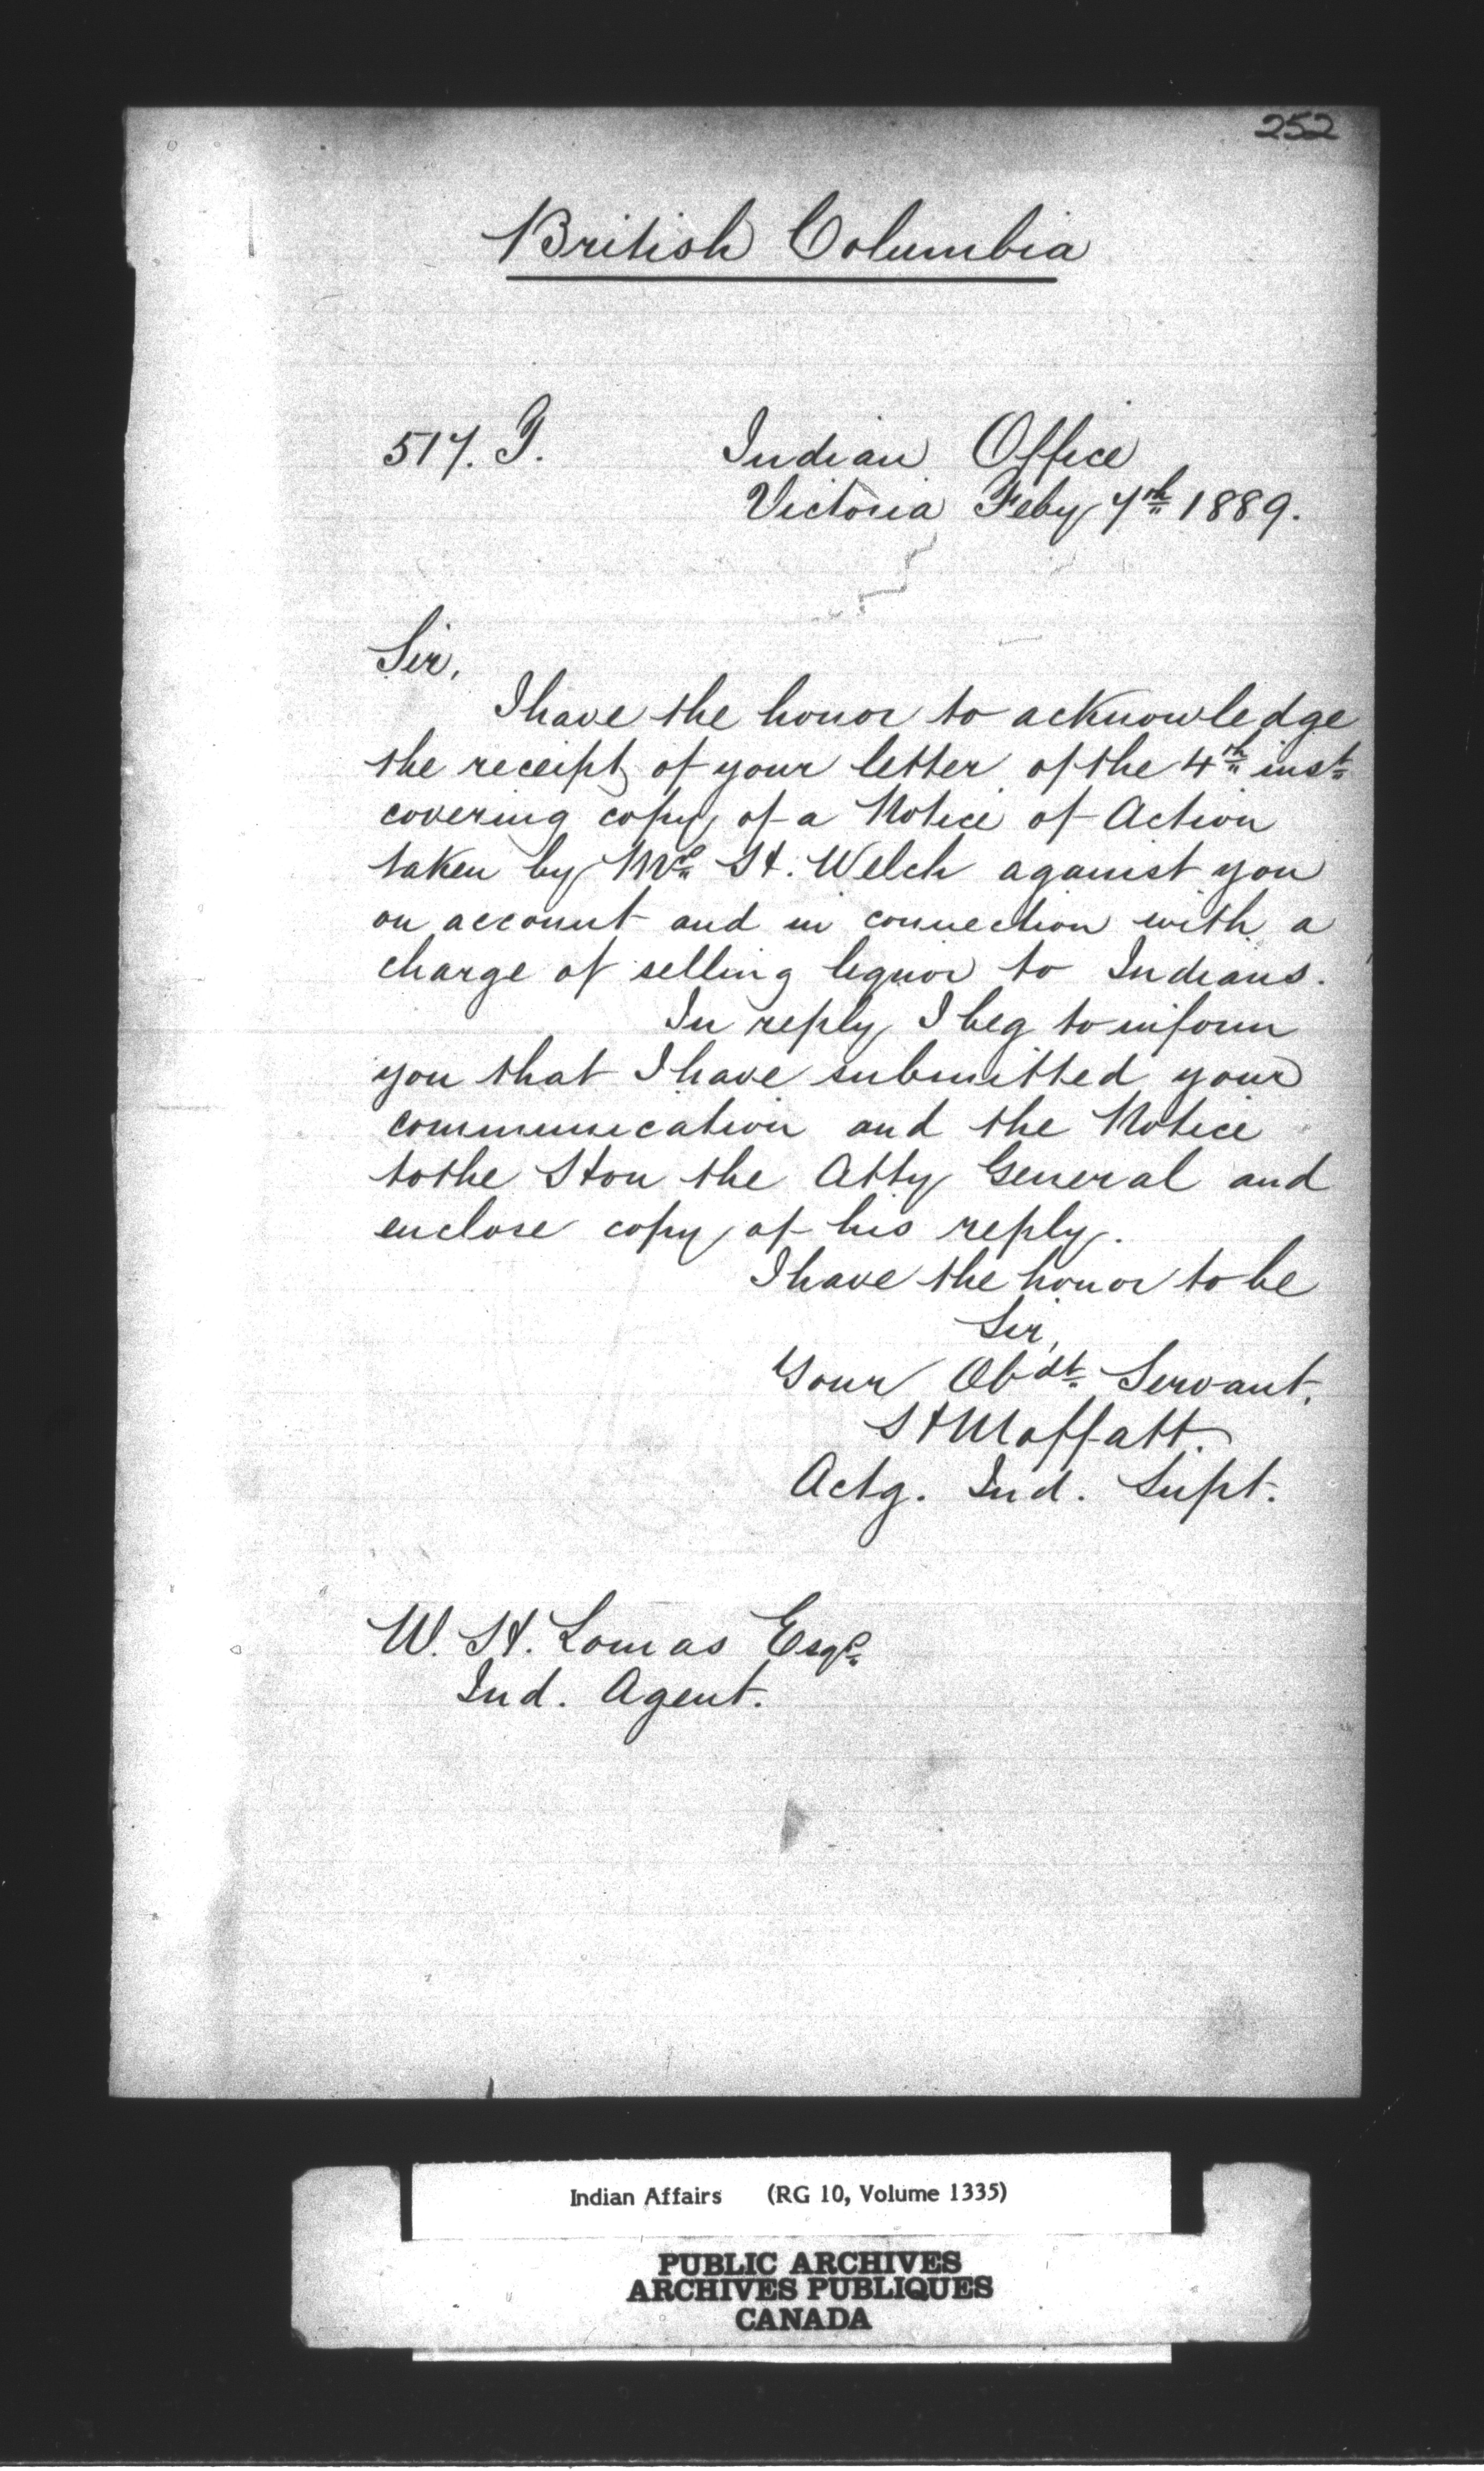 252
British Columbia
517. G.
Indian Office
Victoria Feby 7th 1889.
Sir,
I have the honor to acknowledge
the receipt of your letter of the 4th inst
covering copy of a Notice of Action
taken by Mr H. Welch against you
on account and in connection with a
charge of selling liquor to Indians.
In reply I beg to inform
you that I have submitted your
communication and the Notice
to the Hon the Atty General and
enclose copy of his reply.
I have the honor to be
Sir,
Your Obdt Servant.
H Moffatt.
Actg. Ind. Supt.
W. H. Lomas Esqr
Ind. Agent.
Indian Affairs (RG 10, Volume 1335)
PUBLIC ARCHIVES
ARCHIVES PUBLIQUES
CANADA